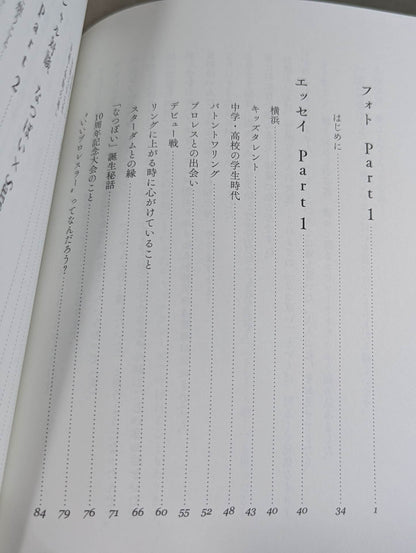 フォト Part 1 1
はじめに 34
エッセイ Part 1 40
横浜 40
キッズタレント 43
中学・高校の学生時代 48
バトントワリング 52
プロレスとの出会い 55
デビュー戦 60
リングに上がる時に心がけていること 66
スターダムとの縁 71
「なつぽい」誕生秘話 76
10周年記念大会のこと 79
“いいプロレスラー”ってなんだろう? 84
Part 2
なつぽい×